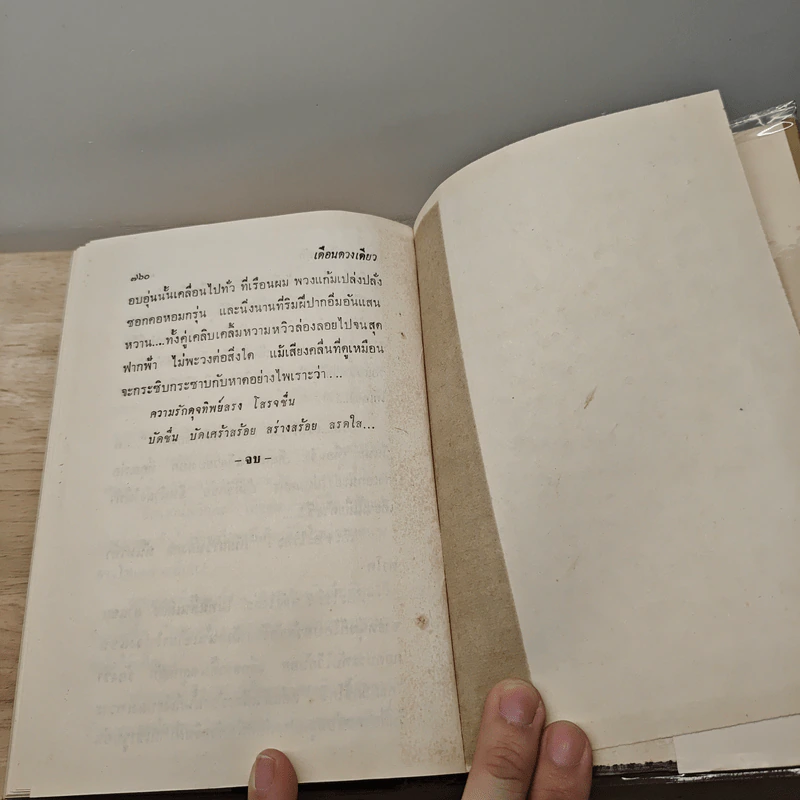 เดือนดวงเดียว
๗๖๐
อบอุ่นนั้นเคลื่อนไปทั่ว ที่เรือนผม พวงแก้มเปล่งปลั่ง
ซอกคอหอมกรุ่น และนิ่งนานที่ริมฝีปากอิ่มอันแสน
หวาน....ทั้งคู่เคลิบเคลิ้มหวามหวิวล่องลอยไปจนสุด
ฟากฟ้า ไม่พะวงต่อสิ่งใด แม้เสียงคลื่นที่ดูเหมือน
จะกระซิบกระซาบกับหาดอย่างไพเราะว่า...
ความรักดุจทิพย์สรง โสรจชื่น
บัดชื่น บัดเศร้าสร้อย สร่างสร้อย สรดใส...
– จบ –